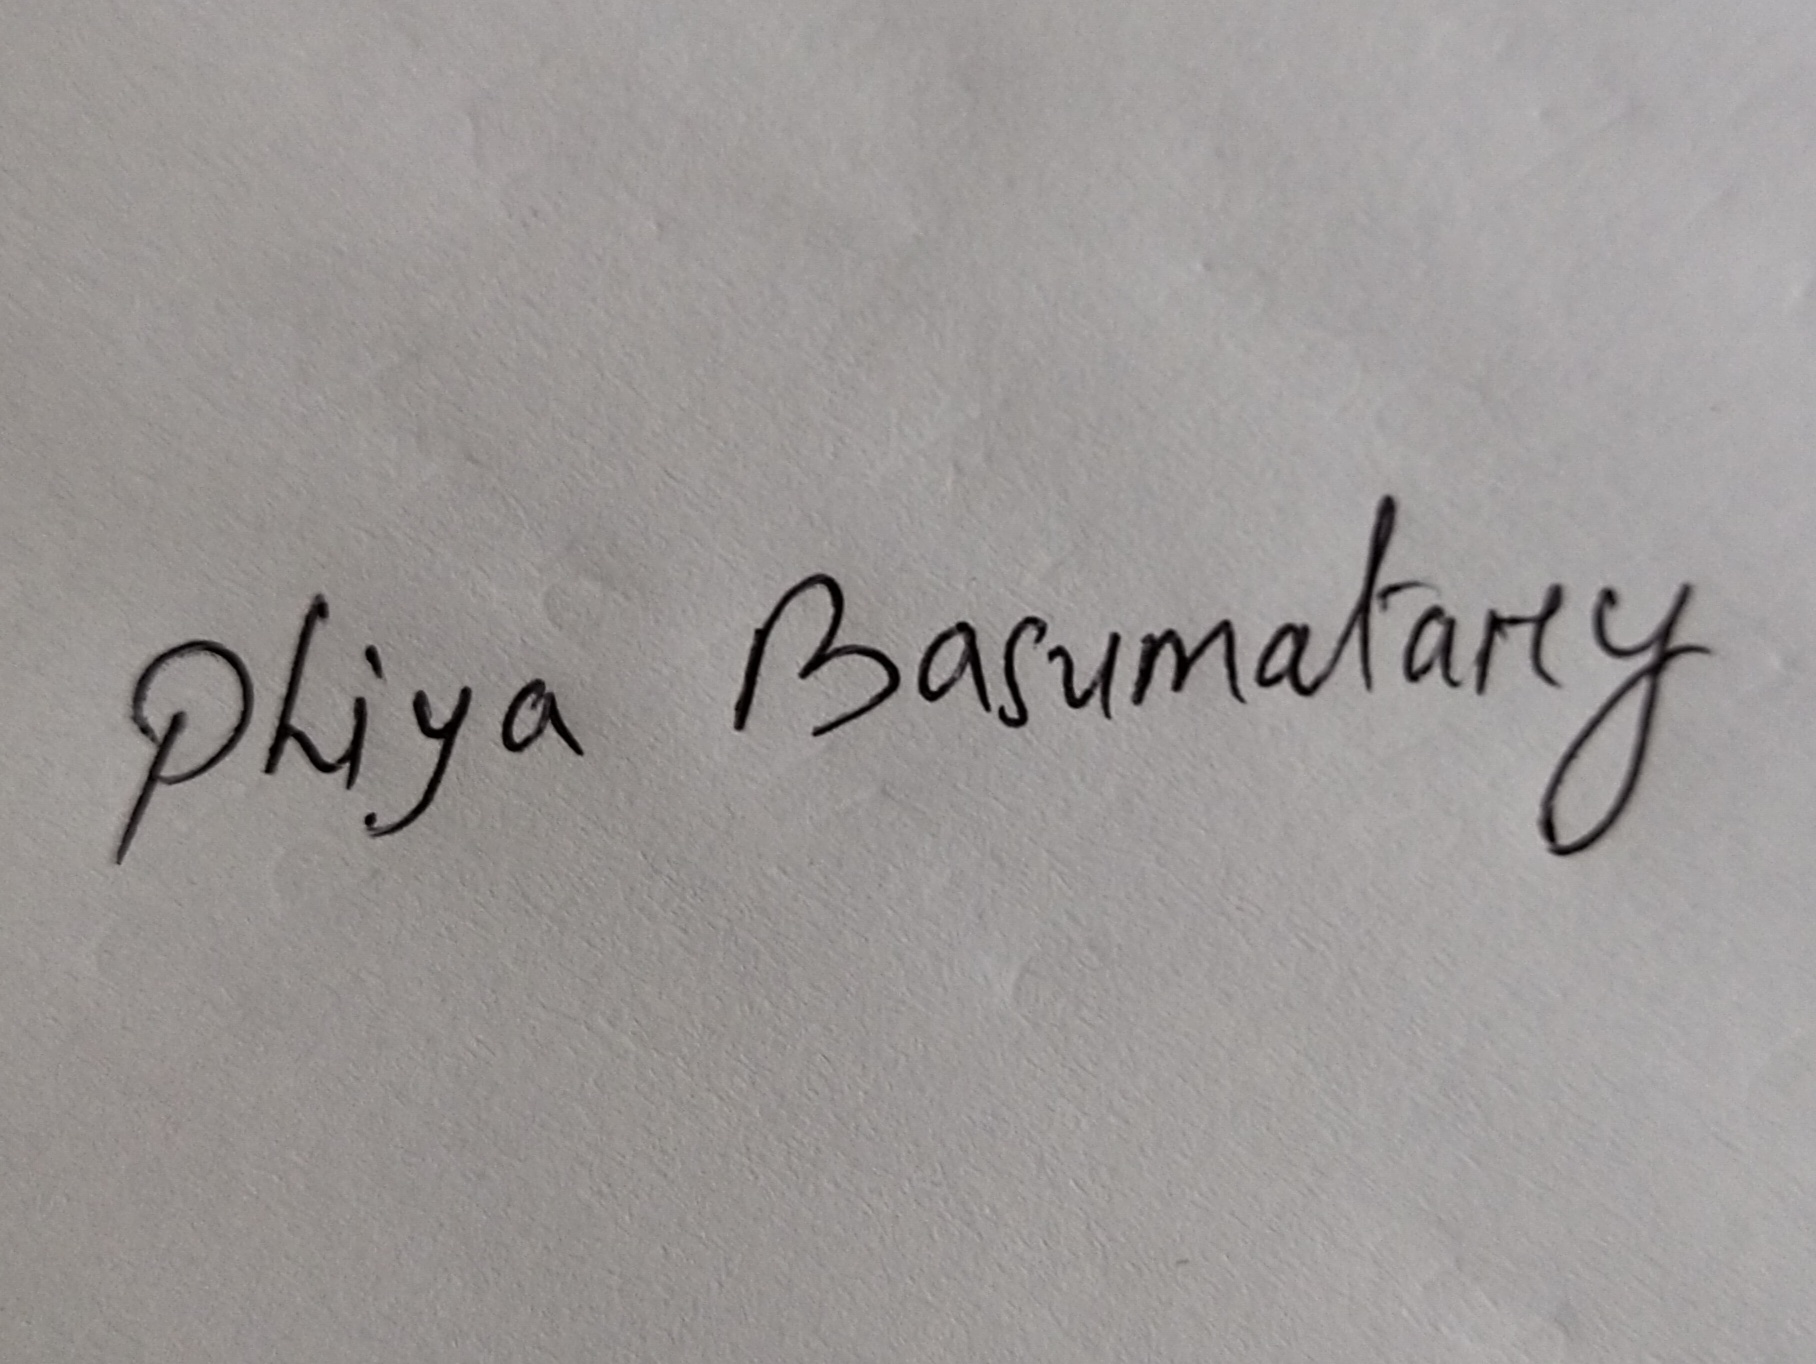 Phiya Basumatary